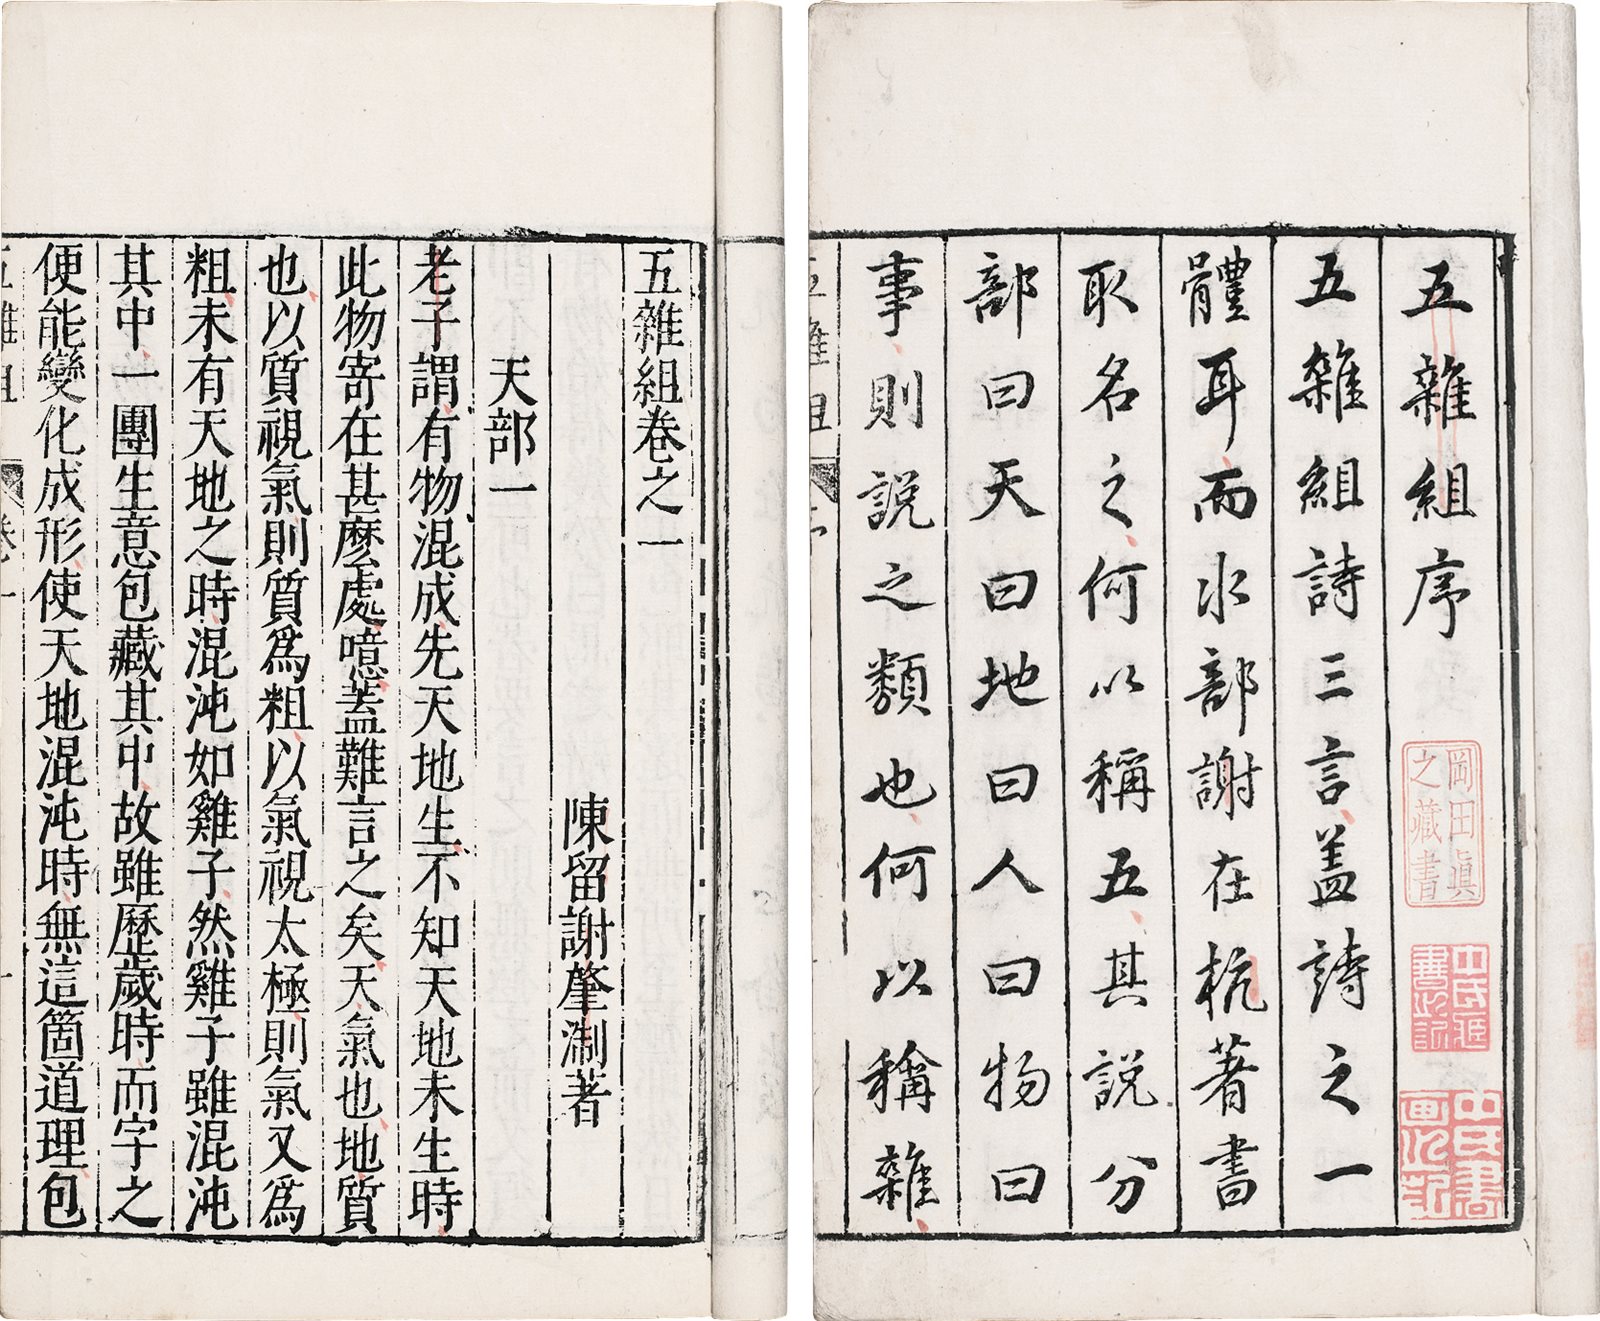 五雜組序
五雜組詩三言盖詩之一
體耳而水部謝在杭著書
取名之何以稱五其說分
部曰天曰地曰人曰物曰
事則說之類也何以稱雜
岡田眞
之藏書
五雜組卷之一
陳留謝肇淛著
天部一
老子謂有物混成先天地生不知天地未生時
此物寄在甚麼處噫蓋難言之矣天氣也地質
也以質視氣則質爲粗以氣視太極則氣又爲
粗未有天地之時混沌如雞子然雞子雖混沌
其中一團生意包藏其中故雖歷歲時而字之
便能變化成形使天地混沌時無這箇道理包